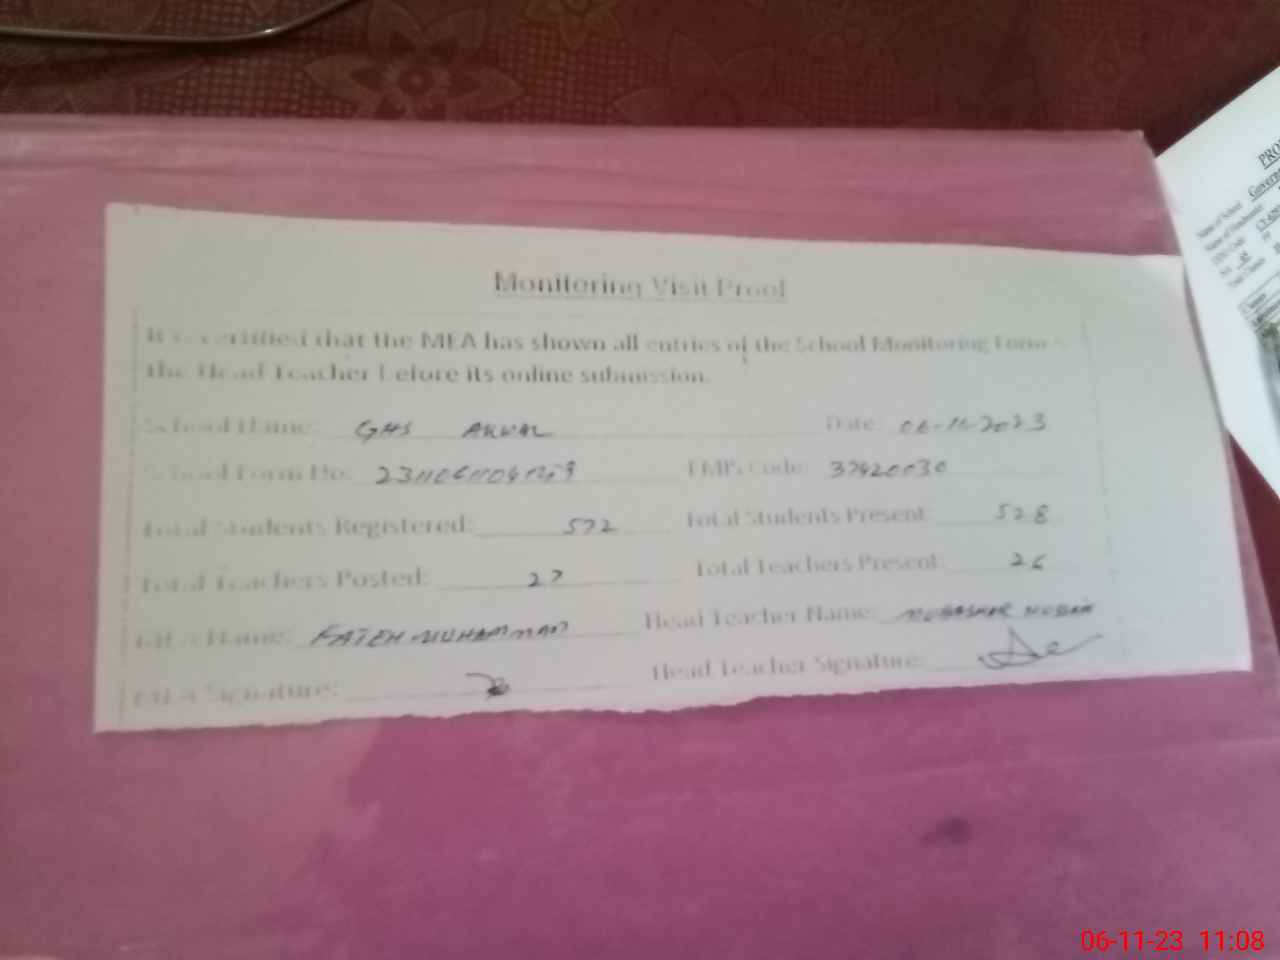 Monitoring Visit Proof
It is certified that the MEA has shown all entries of the School Monitoring Form
the Head Teacher before its online submission.
School Name: GHS ARWAL Date: 06-11-2023
School Form No: EMIS Code: 37420030
Total Students Registered: 572 Total Students Present: 528
Total Teachers Posted: 27 Total Teachers Present: 26
MEA Name: FATEH MUHAMMAD Head Teacher Name: MUBASHAR HUSSAIN
MEA Signature: Head Teacher Signature:
Name of School
06-11-23 11:08